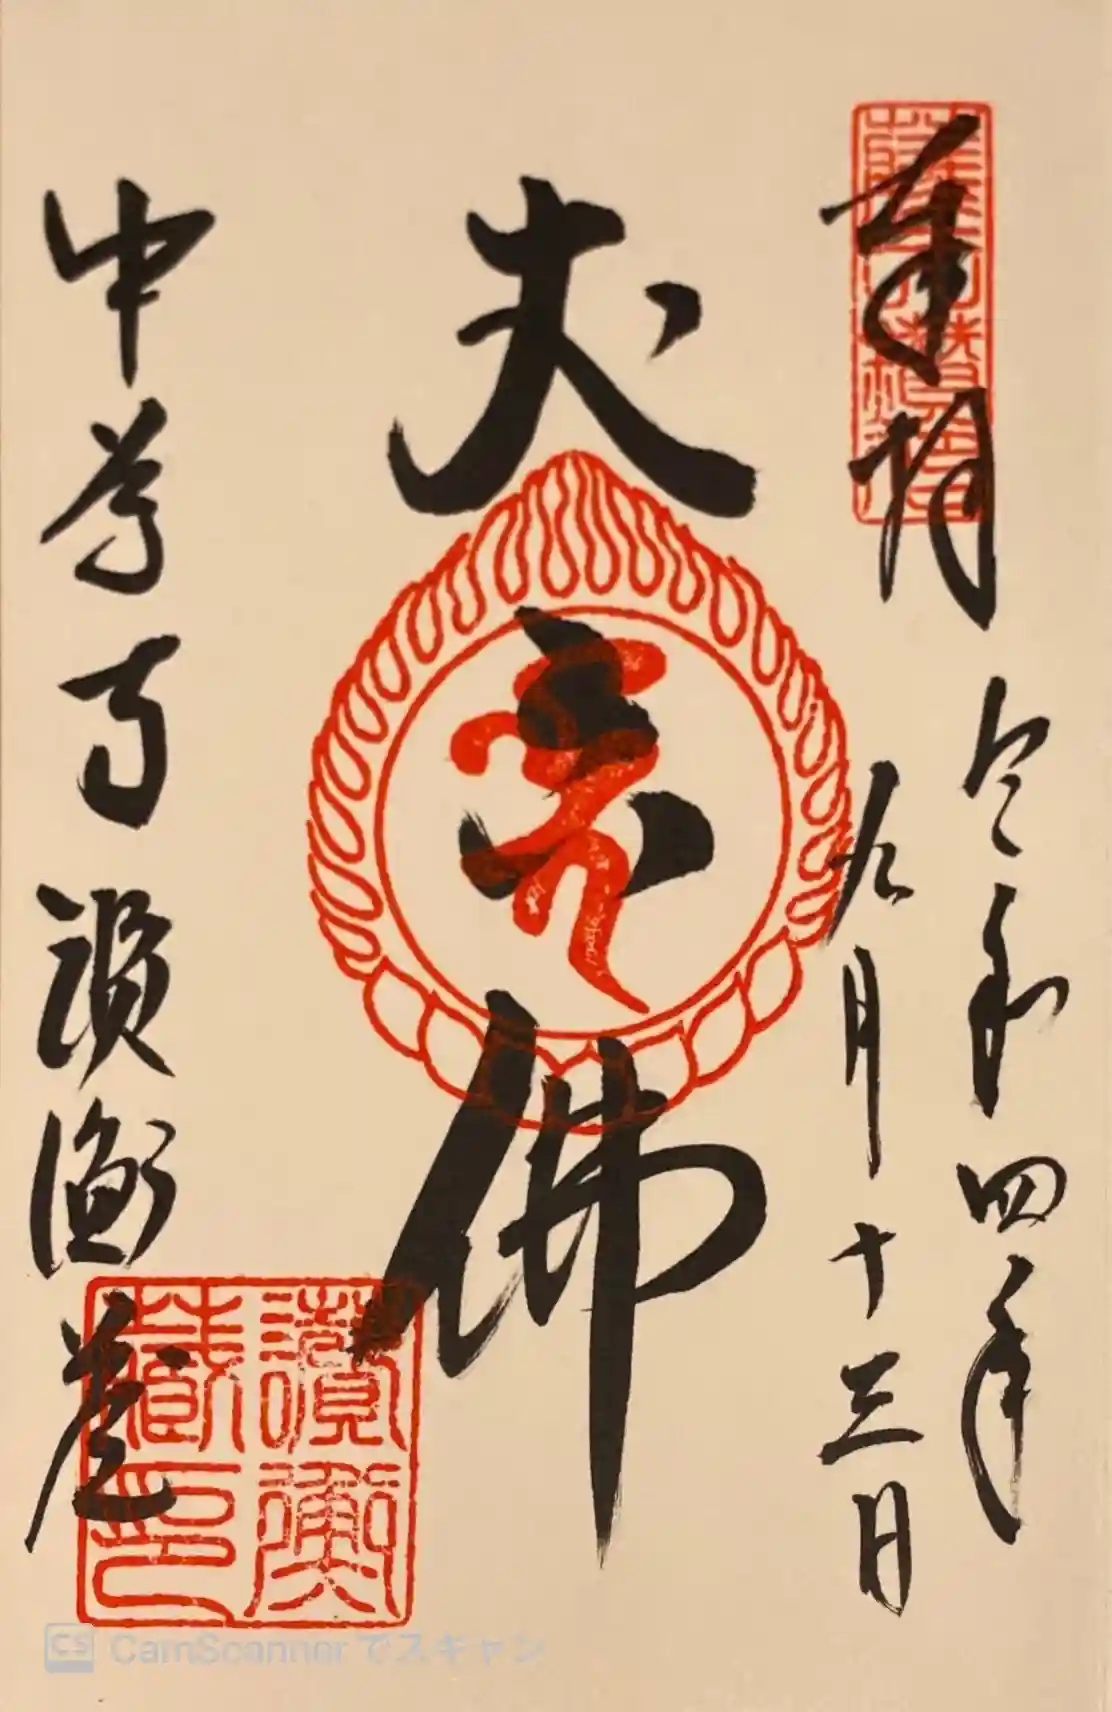 奉拝
令和四年
九月十三日
丈六佛
中尊寺 讃衡蔵
讚衡
藏印
CS CamScannerでスキャン